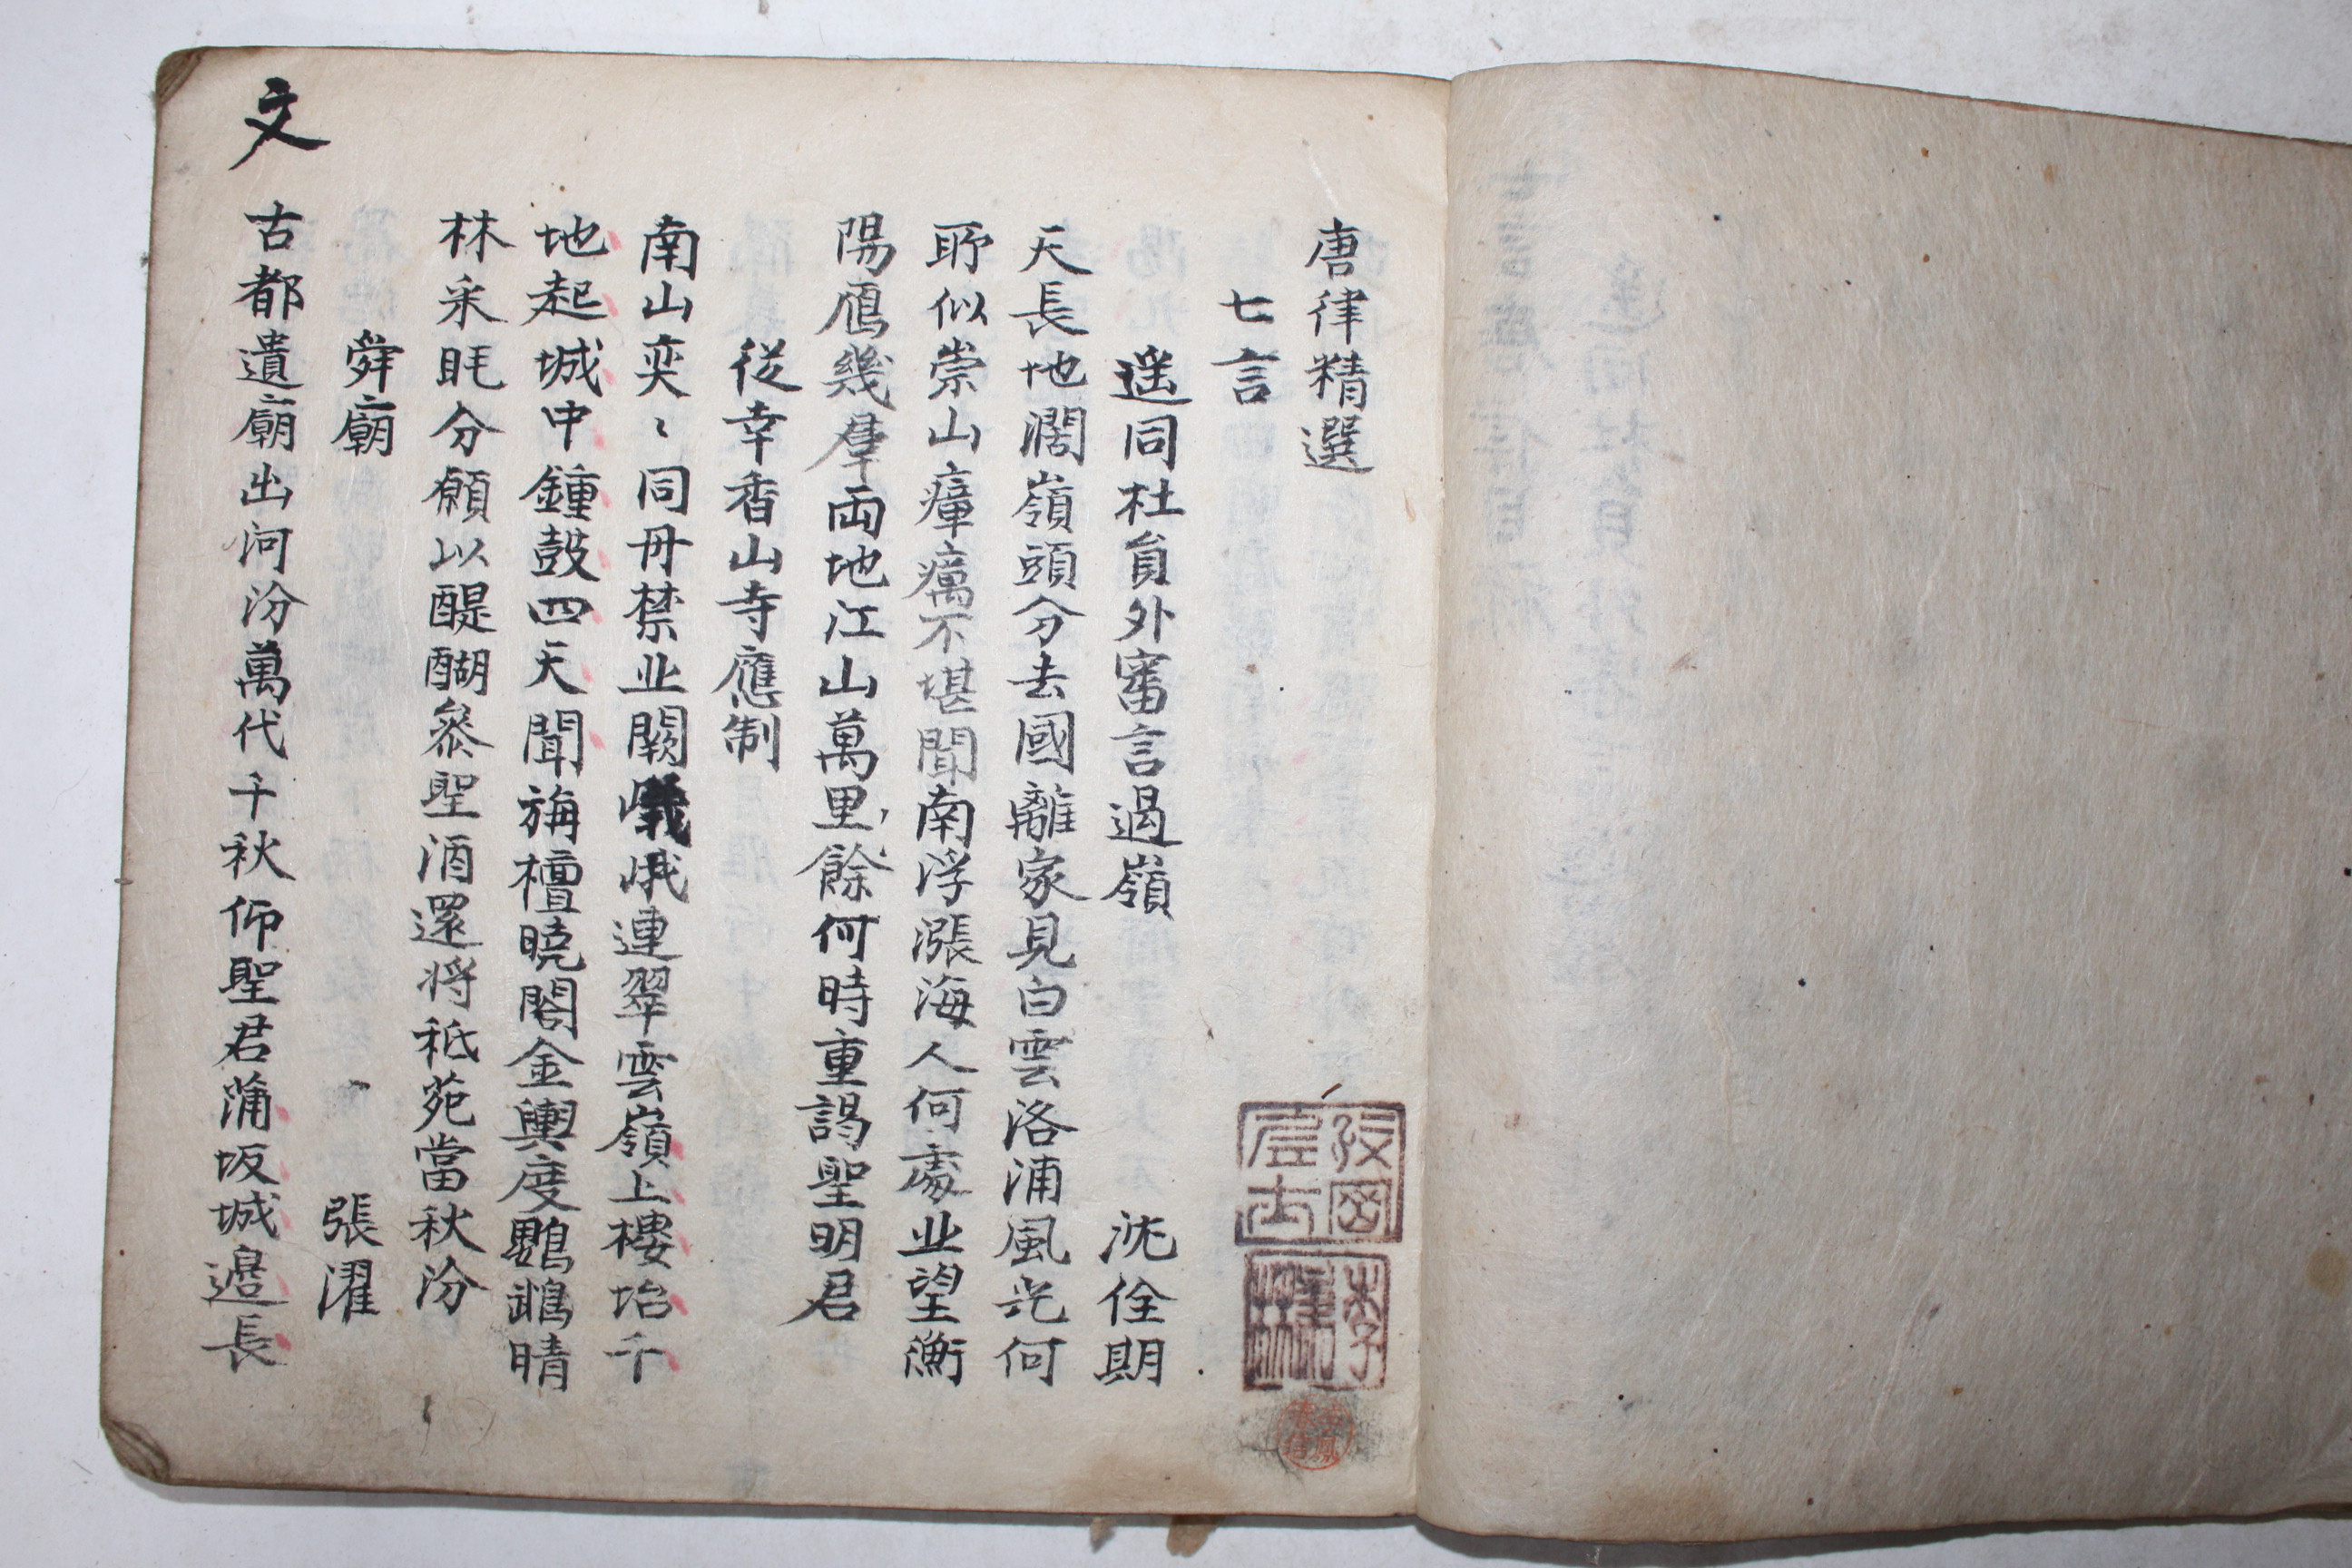 唐律精選
七言
遥同杜員外審言過嶺 沈佺期
天長地濶嶺頭分去國離家見白雲洛浦風光何
所似崇山瘴癘不堪聞南浮漲海人何處北望衡
陽鴈幾羣両地江山萬里餘何時重謁聖明君
從幸香山寺應制
南山奕〻同丹禁北闕峨峨連翠雲嶺上樓坮千
地起城中鍾鼓四天聞旃檀曉閣金輿度鸚鵡晴
林采眊分願以醍醐叅聖酒還将祇苑當秋汾
舜廟 張濯
古都遺廟出河汾萬代千秋仰聖君蒲坂城邉長
文